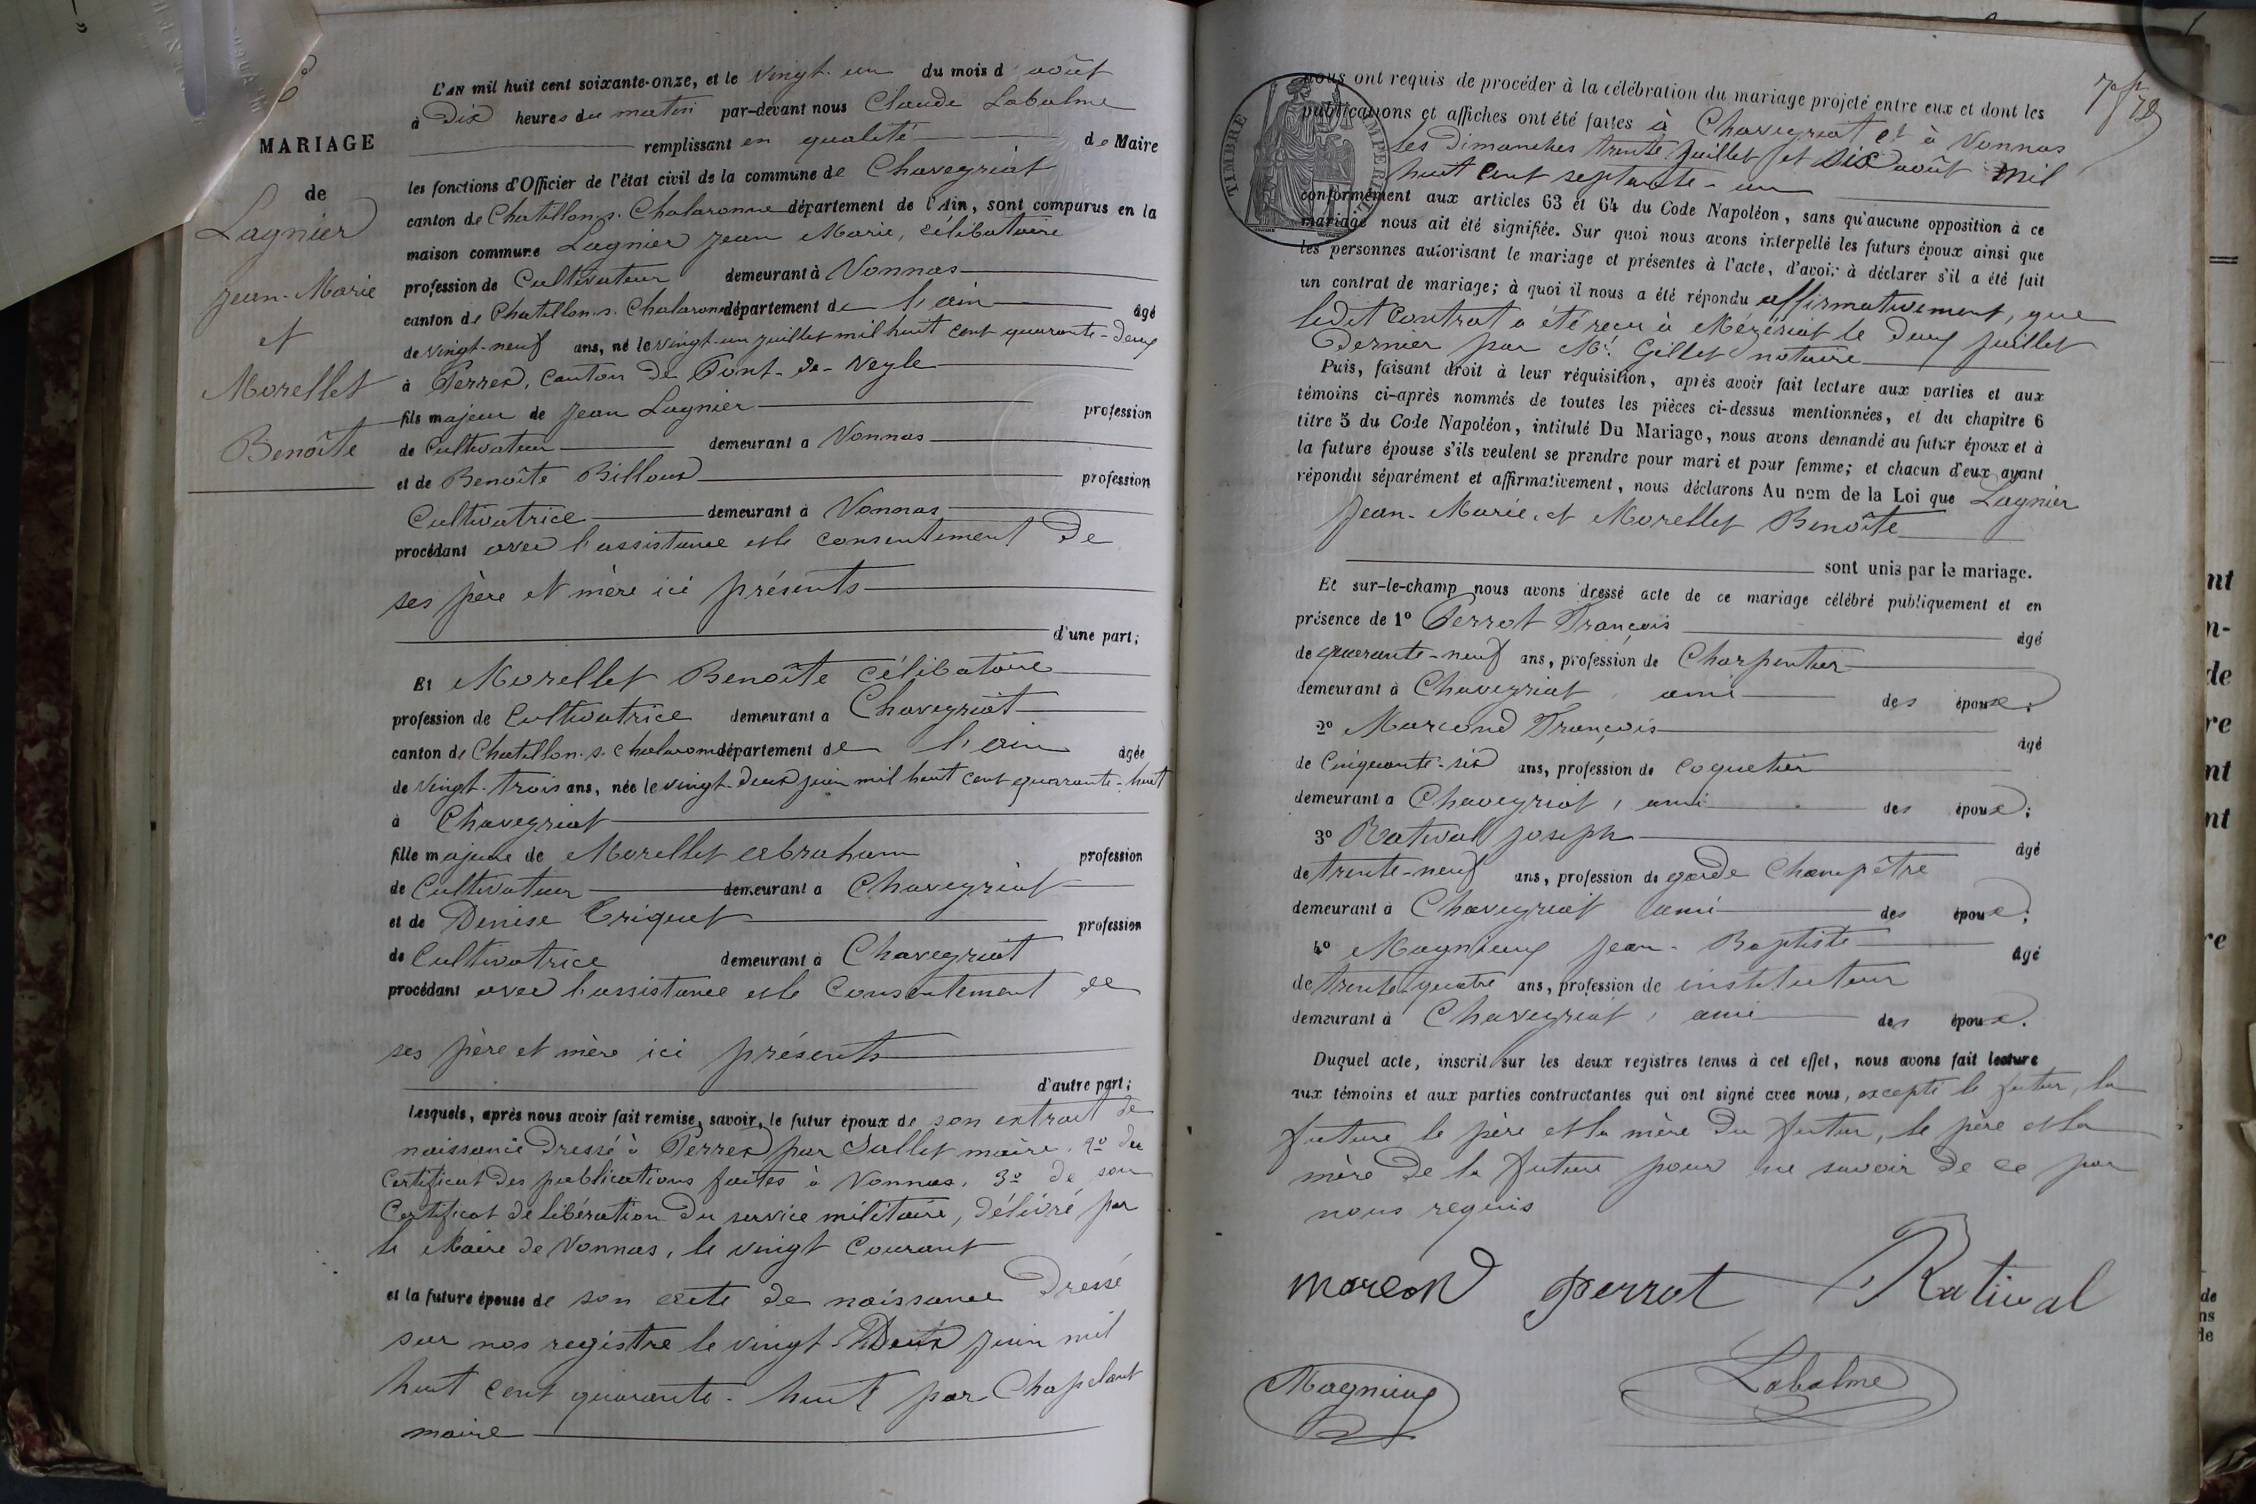 6
MARIAGE
de
Lagnier
Jean-Marie
et
Morellet
Benoîte
L'AN mil huit cent soixante-onze, et le vingt-un du mois d'août
à Dix heures du matin par-devant nous Claude Labalme
remplissant en qualité de Maire
les fonctions d'Officier de l'état civil de la commune de Chaveyriat
canton de Chatillon-s-Chalaronne département de l'Ain, sont comparus en la
maison commune Lagnier Jean Marie, célibataire
profession de Cultivateur demeurant à Vonnas
canton de Chatillon-s-Chalaronne département de l'ain âgé
de vingt-neuf ans, né le vingt-un juillet mil huit cent quarante-deux
à Perrex, canton de Pont-de-Veyle
fils majeur de Jean Lagnier profession
de Cultivateur demeurant à Vonnas
et de Benoîte Billoux profession
Cultivatrice demeurant à Vonnas
procédant avec l'assistance et le consentement de
ses père et mère ici présents
d'une part;
Et Morellet Benoîte célibataire
profession de Cultivatrice demeurant à Chaveyriat
canton de Chatillon-s-Chalaronne département de l'ain âgée
de vingt-trois ans, née le vingt-deux juin mil huit cent quarante-huit
à Chaveyriat
fille majeure de Morellet Abraham profession
de Cultivateur demeurant à Chaveyriat
et de Denise Triquet profession
de Cultivatrice demeurant à Chaveyriat
procédant avec l'assistance et le consentement de
ses père et mère ici présents
d'autre part;
Lesquels, après nous avoir fait remise, savoir, le futur époux de son extrait de
naissance Dressé à Perrex par Sallet maire, 2º du
certificat des publications faites à Vonnas, 3º de son
Certificat de libération du service militaire, délivré par
le Maire de Vonnas, le vingt Courant
et la future épouse de son acte de naissance Dressé
sur nos registre le vingt-Deux juin mil
huit cent quarante-huit par Chapelant
maire
nous ont requis de procéder à la célébration du mariage projeté entre eux et dont les
publications et affiches ont été faites à Chaveyriat et à Vonnas
les Dimanches trente juillet et six août mil
huit cent septante-un
TIMBRE IMPERIAL
conformément aux articles 63 et 64 du Code Napoléon, sans qu'aucune opposition à ce
mariage nous ait été signifiée. Sur quoi nous avons interpellé les futurs époux ainsi que
les personnes autorisant le mariage et présentes à l'acte, d'avoir à déclarer s'il a été fait
un contrat de mariage; à quoi il nous a été répondu affirmativement, que
ledit contrat a été reçu à Mézériat le deux juillet
Dernier par Me. Gillet notaire
Puis, faisant droit à leur réquisition, après avoir fait lecture aux parties et aux
témoins ci-après nommés de toutes les pièces ci-dessus mentionnées, et du chapitre 6
titre 5 du Code Napoléon, intitulé Du Mariage, nous avons demandé au futur époux et à
la future épouse s'ils veulent se prendre pour mari et pour femme; et chacun d'eux ayant
répondu séparément et affirmativement, nous déclarons Au nom de la Loi que Lagnier
Jean-Marie, et Morellet Benoîte
sont unis par le mariage.
Et sur-le-champ nous avons dressé acte de ce mariage célébré publiquement et en
présence de 1º Perrot François âgé
de quarante-neuf ans, profession de Charpentier
demeurant à Chaveyriat, ami des époux;
2º Marcond François âgé
de Cinquante-six ans, profession de coquetier
demeurant à Chaveyriat, ami des époux;
3º Ratival Joseph âgé
de trente-neuf ans, profession de garde Champêtre
demeurant à Chaveyriat ami des époux;
4º Magnieux Jean-Baptiste âgé
de trente-quatre ans, profession de instituteur
demeurant à Chaveyriat, ami des époux.
Duquel acte, inscrit sur les deux registres tenus à cet effet, nous avons fait lecture
aux témoins et aux parties contractantes qui ont signé avec nous, excepté le futur, la
future le père et la mère du futur, le père et la
mère de la future pour ne savoir de ce par
nous requis
Perrot Ratival
Magnieux Labalme